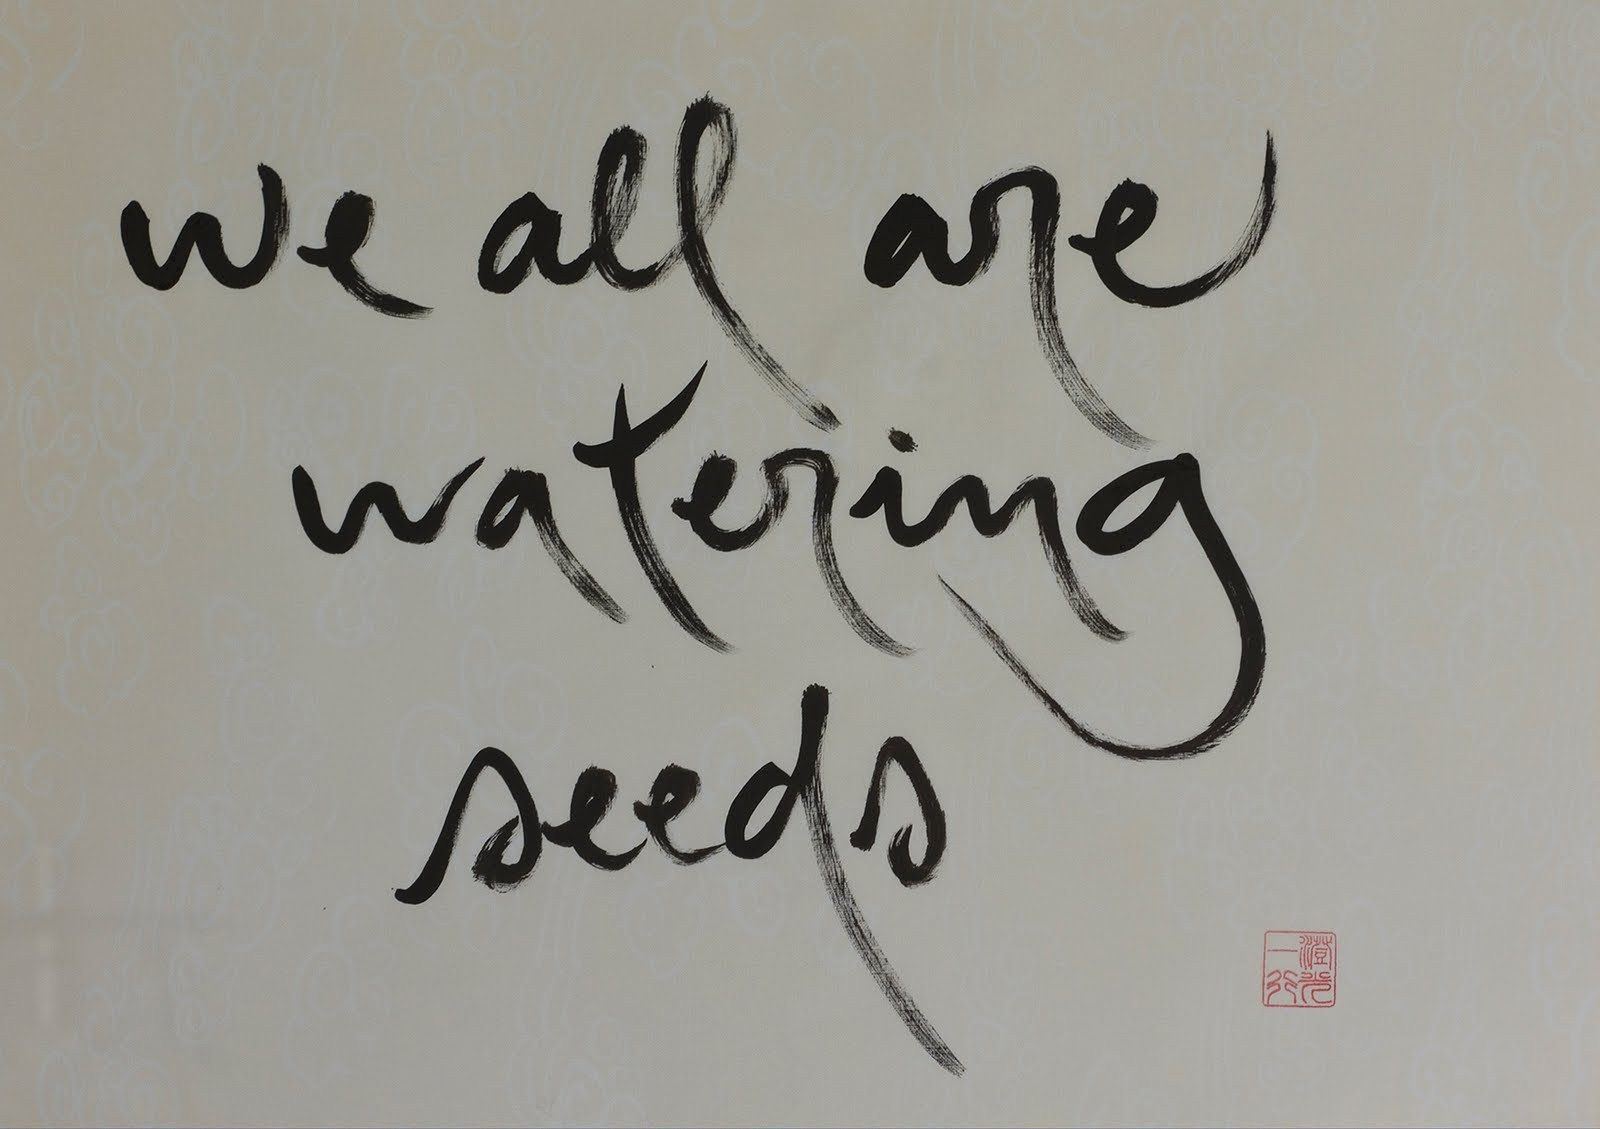 we all are
watering
seeds
澄光
一行